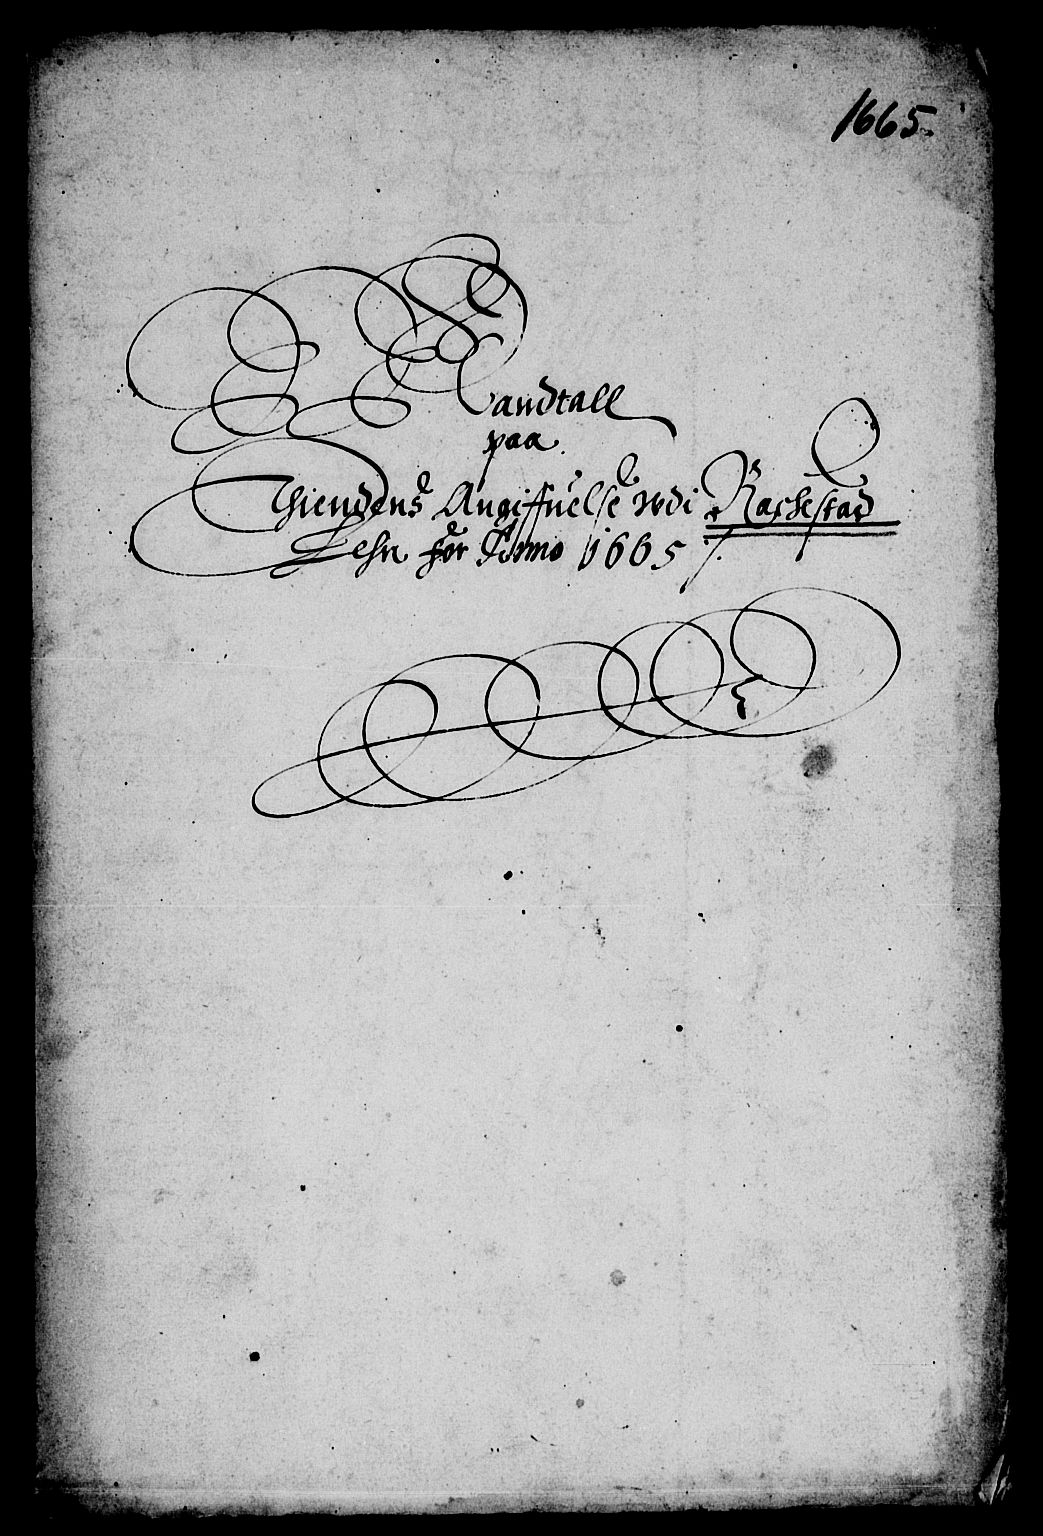 1665.
Mandtall
paa
Thiendens Angiffuelse udi Rachestad
Lehn for Anno 1665